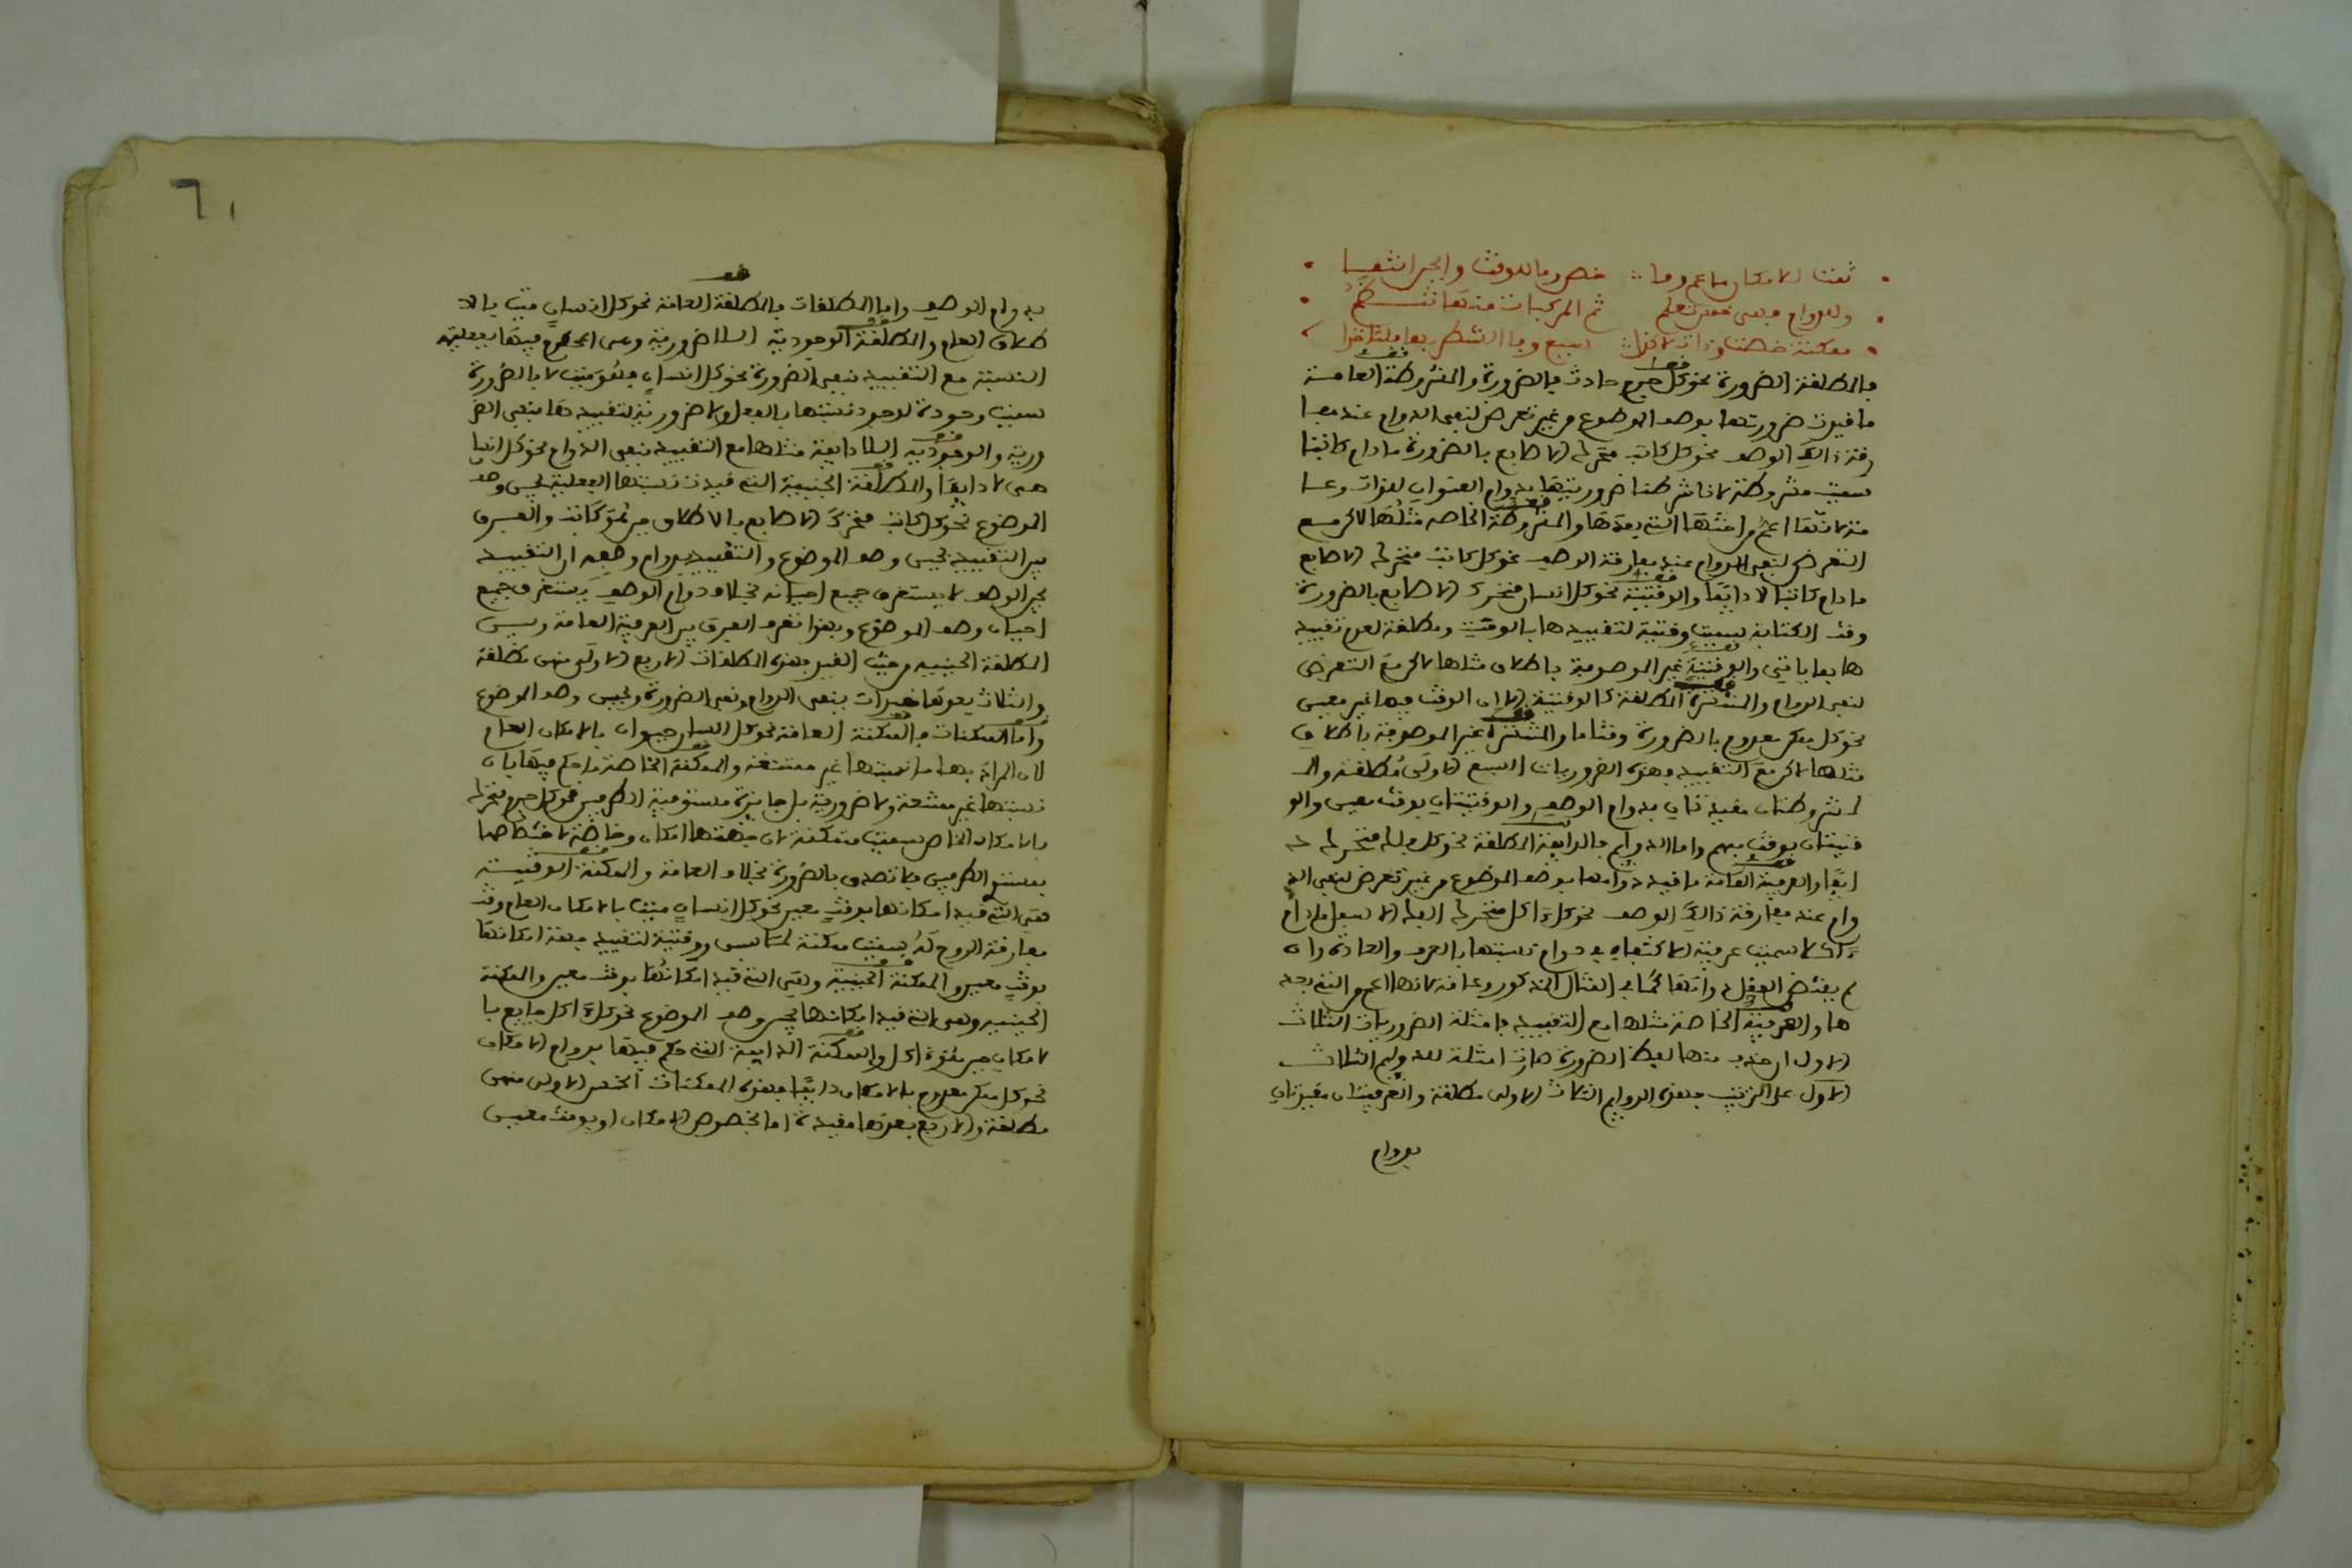 ثمت الامكان ما عم وما خص وما للوقت والحين انتمى
وللدوام ثم المركبات منها تنتظم
ممكنة خصت
فالمطلقة الضرورة نحو كل جرم حادث بالضرورة والمشروطة العامة
ما قيدت ضرورتها بوصف الموضوع من غير تعرض لنفي الدوام عند مفا
رقة ذالك الوصف نحو كل كاتب متحرك الاصابع بالضرورة مادام كاتبا
سميت مشروطة لاشتراطنا ضروريتها بدوام العنوان للذات وعا
مة لانها اعم من اختها التي بعدها والمشروطة الخاصة مثلها لاكن مع
التعرض لنفي الدوام عند مفارقة الوصف نحو كل كاتب متحرك الاصابع
مادام كاتبا لا دايما والوقتية نحو كل انسان متحرك الاصابع بالضرورة
وقت الكتابة سميت وقتية لتقييدها بالوقت ومطلقة لعدم تقييد
ها بما ياتي والوقتية غير الموصوفة باطلاق مثلها لاكن مع التعرض
لنفي الدوام والمنتشرة المطلقة كالوقتية الا ان الوقت فيها غير معين
نحو كل ممكن معدوم بالضرورة وقتا ما والمنتشرة غير الموصوفة باطلاق
مثلها لاكن مع التقييد فهذه الضروريات السبع الاولى مطلقة والـ
مشروطتان مقيدتان بدوام الوصف والوقتيتان بوقت معين والو
قتيتان بوقت مبهم واما الدوايم فالدايمة المطلقة نحو كل فلك متحرك د
ايما والعرفية العامة ما قيد دوامها بوصف الموضوع من غير تعرض لنفي الد
وام عند مفارقة ذالك الوصف نحو كل ءاكل متحرك الفك الاسفل مادام
ءاكلا سميت عرفية لاكتفايه بدوام نسبتها بالعرف والعادة وان
لم يقتض العقل دوامها كما في المثال المذكور وعامة لانها اعم من التي بعد
ها والعرفية الخاصة مثلها مع التقييد فامثلة الضروريات الثلاث
الاول ان حذف منها لفظ الضرورة صارت امثلة للدوايم الثلاث
الاول على الترتيب فهذه الدوايم الثلاث الاولى مطلقة والعرفيتان مقيدتان
بدوام
٦١
بدوام الوصف واما المطلقات فالمطلقة العامة نحو كل انسان ميت بالا
طلاق العام والمطلقة الوجودية اللاضرورية وهي المحكوم فيها بفعلية
النسبة مع التقييد بنفي الضرورة نحو كل انسان ميت لا بالضرورة
سميت وجودية لوجود نسبتها بالفعل ولا ضرورية لتقييدها بنفي الضر
ورية والوجودية اللادايمة مثلها مع التقييد بنفي الدوام نحو كل انسا
لا دايما والمطلقة الحينية التي قيدت نسبتها الفعلية بحين وصف
الموضوع نحو كل كاتب متحرك الاصابع بالاطلاق حين هو كاتب والفرق
بين التقييد بحين وصف الموضوع والتقييد بدوام وصفه ان التقييد
بحين الوصف لا يستغرق جميع احيانه بخلاف دوام الوصف يستغرق جميع
احيان وصف الموضوع وبهذا تعرف الفرق بين العرفية العامة وبين
المطلقة الحينية فهذه المطلقات الاربع الاولى منهن مطلقة
والثلاث بعدها مقيدات بنفي الدوام ونفي الضرورة وبحين وصف الموضوع
واما الممكنات فالممكنة العامة نحو كل انسان حيوان بالامكان العام
لان المراد بها ما نسبتها غير ممتنعة والممكنة الخاصة ما حكم فيها بان
نسبتها غير ممتنعة ولا ضرورية بل جايزة مستوية الطرفين نحو كل جرم متحرك
بالامكان الخاص سميت ممكنة لان جهتها امكان وخاصة لاختصاصها
بمستو الطرفين فلا تصدق بالضرورة بخلاف العامة والممكنة الوقتية
هي التي قيد امكانها بوقت معين نحو كل انسان ميت بالامكان العام وقت
مفارقة الروح له سميت ممكنة ووقتية لتقييد امكانها
بوقت معين والممكنة الحينية وهي التي قيد امكانها بوقت معين والممكنة
الحينية وهي التي قيد امكانها بحين وصف الموضوع نحو كل ءاكل جايع با
لامكان حين هو ءاكل والممكنة الدايمة التي حكم فيها بدوام الامكان
نحو كل ممكن معدوم بالامكان دايما فهذه الممكنات الخمس الاولى منهن
مطلقة والاربع بعدها مقيدة اما بخصوص الامكان او بوقت معين